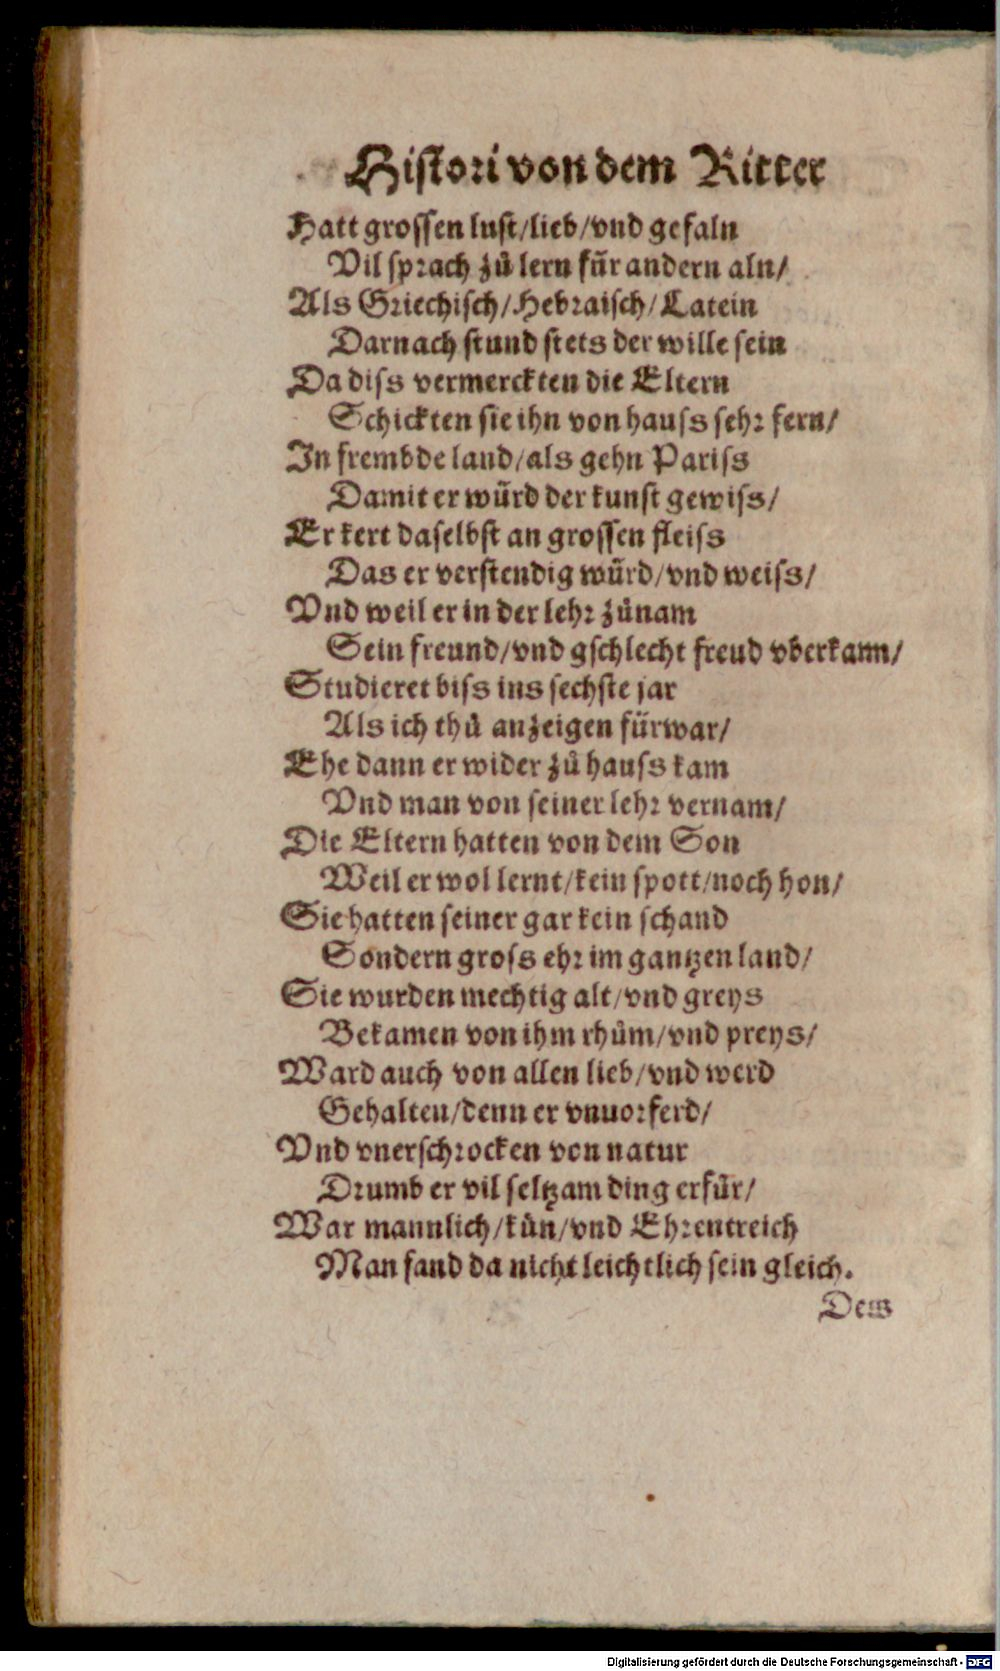 Histori von dem Ritter
Hatt grossen lust/lieb/vnd gefaln
Vil sprach zů lern für andern aln/
Als Griechisch/Hebraisch/Latein
Darnach stund stets der wille sein
Da diss vermerckten die Eltern
Schickten sie ihn von hauss sehr fern/
In frembde land/als gehn Pariss
Damit er würd der kunst gewiss/
Er kert daselbst an grossen fleiss
Das er verstendig würd/vnd weiss/
Vnd weil er in der lehr zůnam
Sein freund/vnd gschlecht freud vberkamn/
Studieret biss ins sechste jar
Als ich thů anzeigen fürwar/
Ehe dann er wider zů hauss kam
Vnd man von seiner lehr vernam/
Die Eltern hatten von dem Son
Weil er wol lernt/kein spott/noch hon/
Sie hatten seiner gar kein schand
Sondern gross ehr im gantzen land/
Sie wurden mechtig alt/vnd greys
Bekamen von ihm rhům/vnd preys/
Ward auch von allen lieb/vnd werd
Gehalten/denn er vnuorferd/
Vnd vnerschrocken von natur
Drumb er vil seltzam ding erfůr/
War mannlich/kün/vnd Ehrentreich
Man fand da nicht leichtlich sein gleich.
Dew
Digitalisierung gefördert durch die Deutsche Forschungsgemeinschaft - DFG